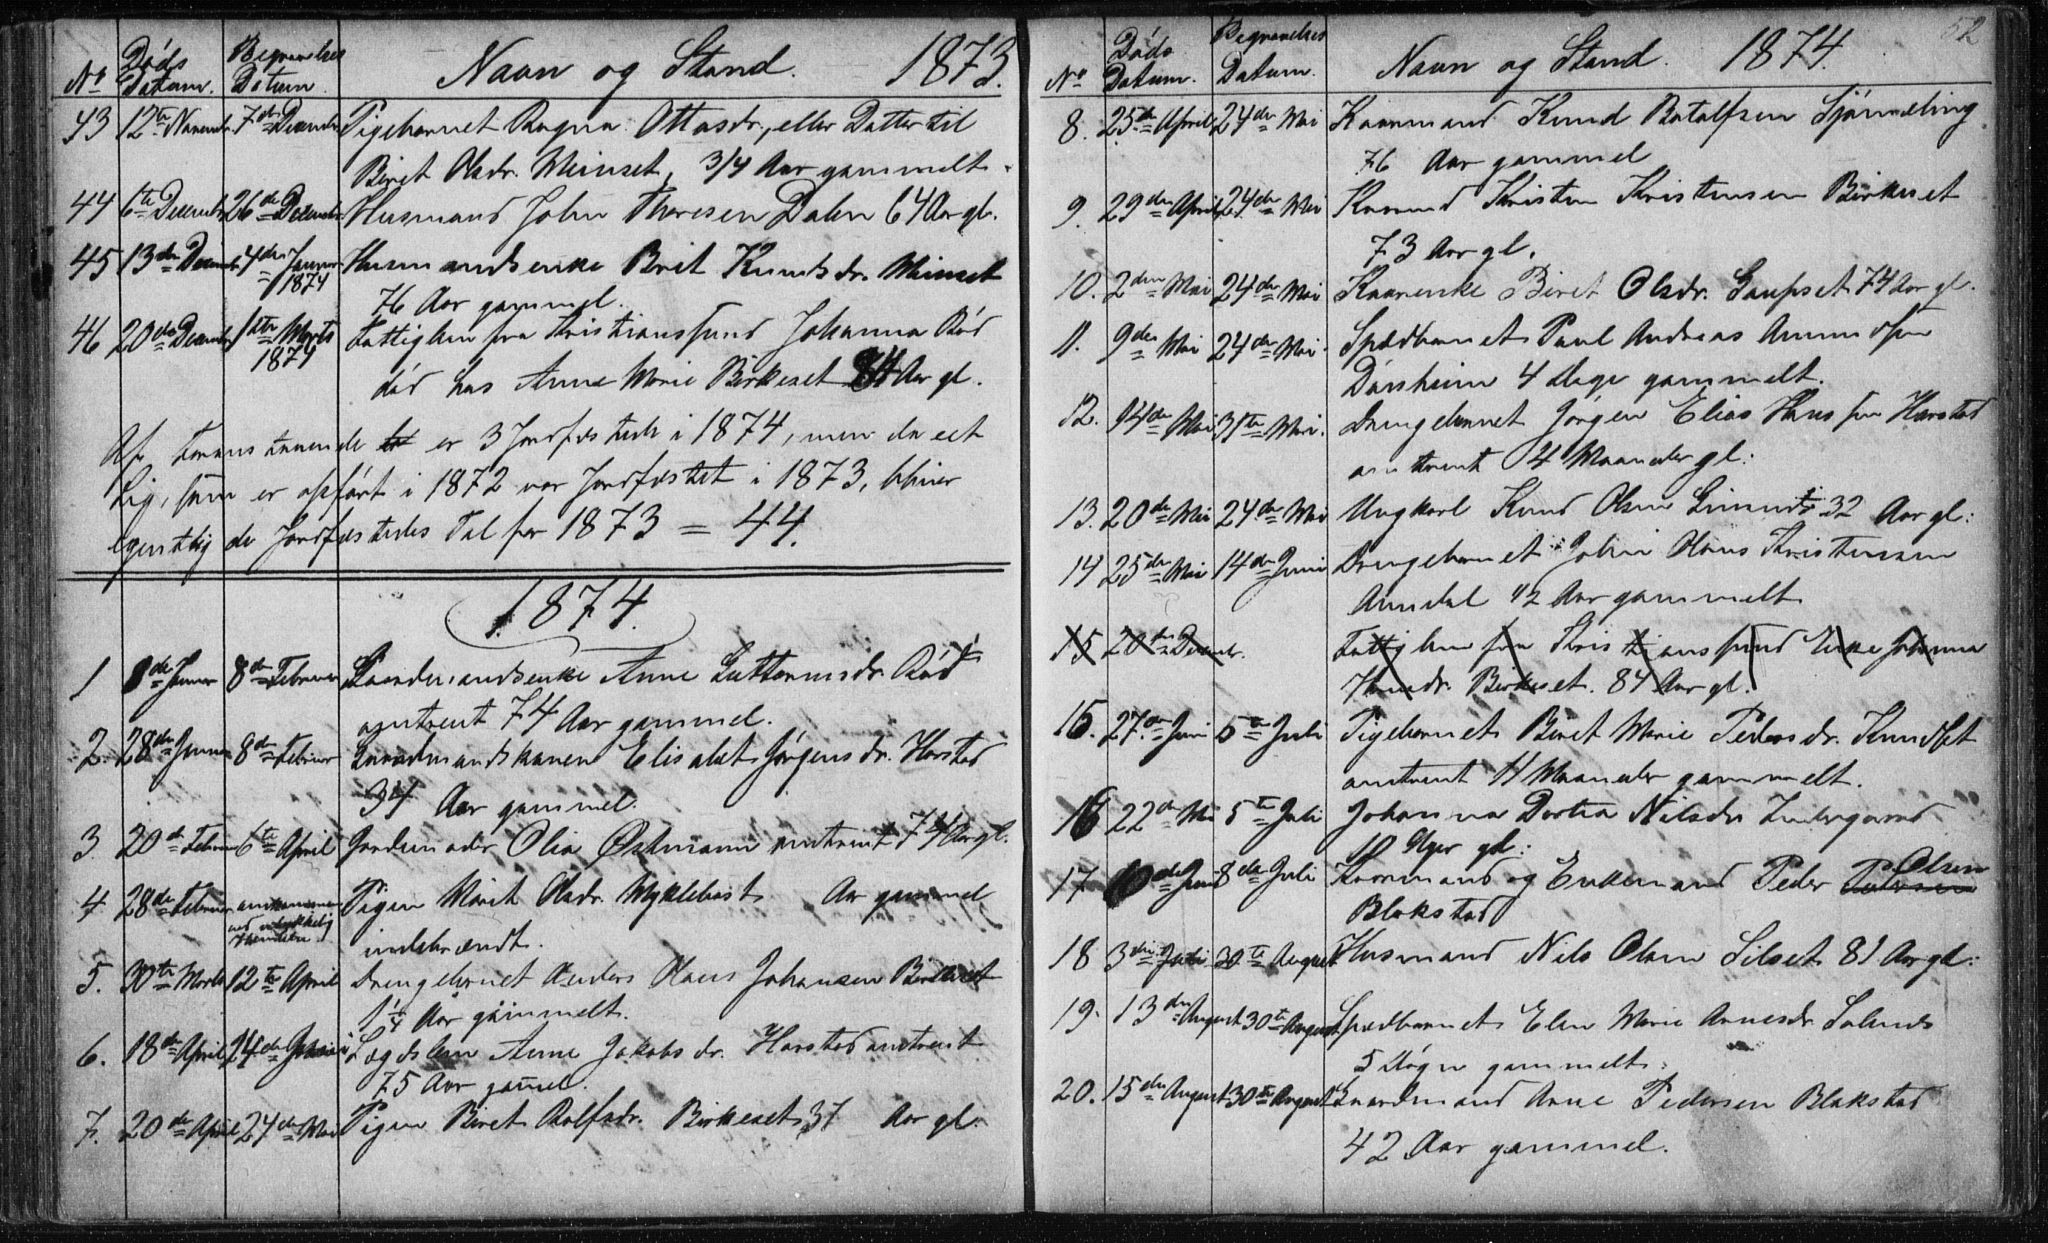 No Døds Datum. Begravelses Datum. Navn og Stand. 1873.
43 12te Novemb. 7de Decemb. Pigebarnet Ragna Ottosdr., eller Datter til
Beret Olsdr. Meinset, 3/4 Aar gammelt.
44 6te Decemb. 26de Decemb. Husmand John Thoresen Dalen 64 Aar gl.
45 13de Decemb. 4de Januar 1874 Husmandsenke Berit Knudsdr. Meinset
76 Aar gammel.
46 20de Decemb. 1ste Marts 1874 Fattiglem fra Kristianssund Johanna Rød
død hos Anne Marie Birkeset 84 Aar gl.
Af foranstaaende er 3 Jordfæstede i 1874, men da eet
Lig, som er opført i 1872 var Jordfæstet i 1873, bliver
egentlig de Jordfæstedes Tal for 1873 = 44.
1874.
1 8de Februar Anne Guttormsdr. Rød
omtrent 74 Aar gammel.
2. 28de Januar 8de Februar Gaardmandskonen Elisabet Jørgensdr. Harstad
34 Aar gammel.
3. 20de Februar 6te April Jordemoder Olia Østmann omtrent 74 Aar gl.
4 28de Februar omkommen ved ulykkelig Hændelse. Pigen Marit Olsdr. Myklebost Aar gammel
indebrændt.
5. 30te Marts 12te April Drengebarnet Anders Hans Johansen Birkeset
1 1/4 Aar gammelt.
6. 18de April 24de Lægdslem Anne Jakobsdr. Harstad omtrent
75 Aar gammel.
7. 20de April 24de Mai Pigen Beret Rolfsdr. Birkeset 37 Aar gl.
52
No Døds Datum. Begravelses Datum. Navn og Stand. 1874.
8. 25de April 24de Mai Kaarmand Knud Botolfsen Sjømeling
76 Aar gammel
9. 29de April 24de Mai Kaarmd Kristen Kristensen Birkeset
73 Aar gl.
10. 2den Mai 24de Mai Kaarenke Beret Olsdr. Gaupset 74 Aar gl.
11. 9de Mai 24de Mai. Spædbarnet Paul Andreas
4 Dage gammelt.
12. 14de Mai 31te Mai. Drengebarnet Jørgen Elias Hansson Harstad
omtrent 4 Maaneder gl:
13. 20de Mai 24de Mai Ungkarl Knud Olsen 32 Aar gl:
14 25de Mai 14de Juni Drengebarnet John Hans Kristensen
Aandal 1/2 Aar gammelt
15 20de Decemb. Fattiglem fra Kristianssund Enke Johanna
Birkeset. 84 Aar gl.
15. 27de Juni 5te Juli Pigebarnet Beret Marie Pedersdr.
omtrent 11 Maaneder gammelt.
16 22de Mai 5te Juli Johanna Dortea Nilsdr
10 Uger gl.:
17 10de Juni 8de Juli Kaarmand og Enkemand Peder Olsen
Blakstad
18 3die Juli 30te August Husmand Nils Olsen Silset 81 Aar gl:
19. 13de August 30te August Spædbarnet Elen Marie Arnesdr.
5 Døgn gammelt.
20. 15de August 30te August Gaardmand Arne Pedersen Blakstad
42 Aar gammel.